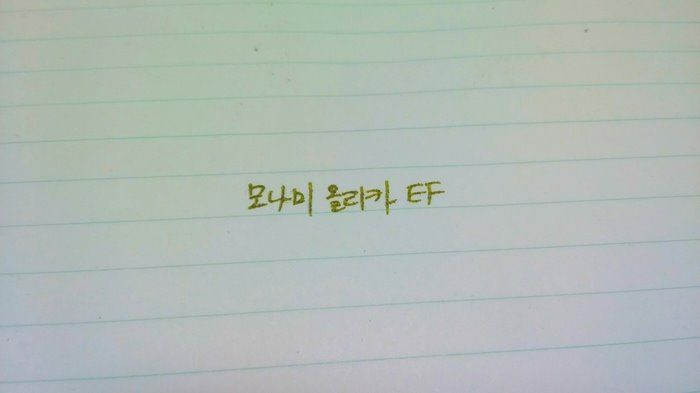 모나미 올리카 EF